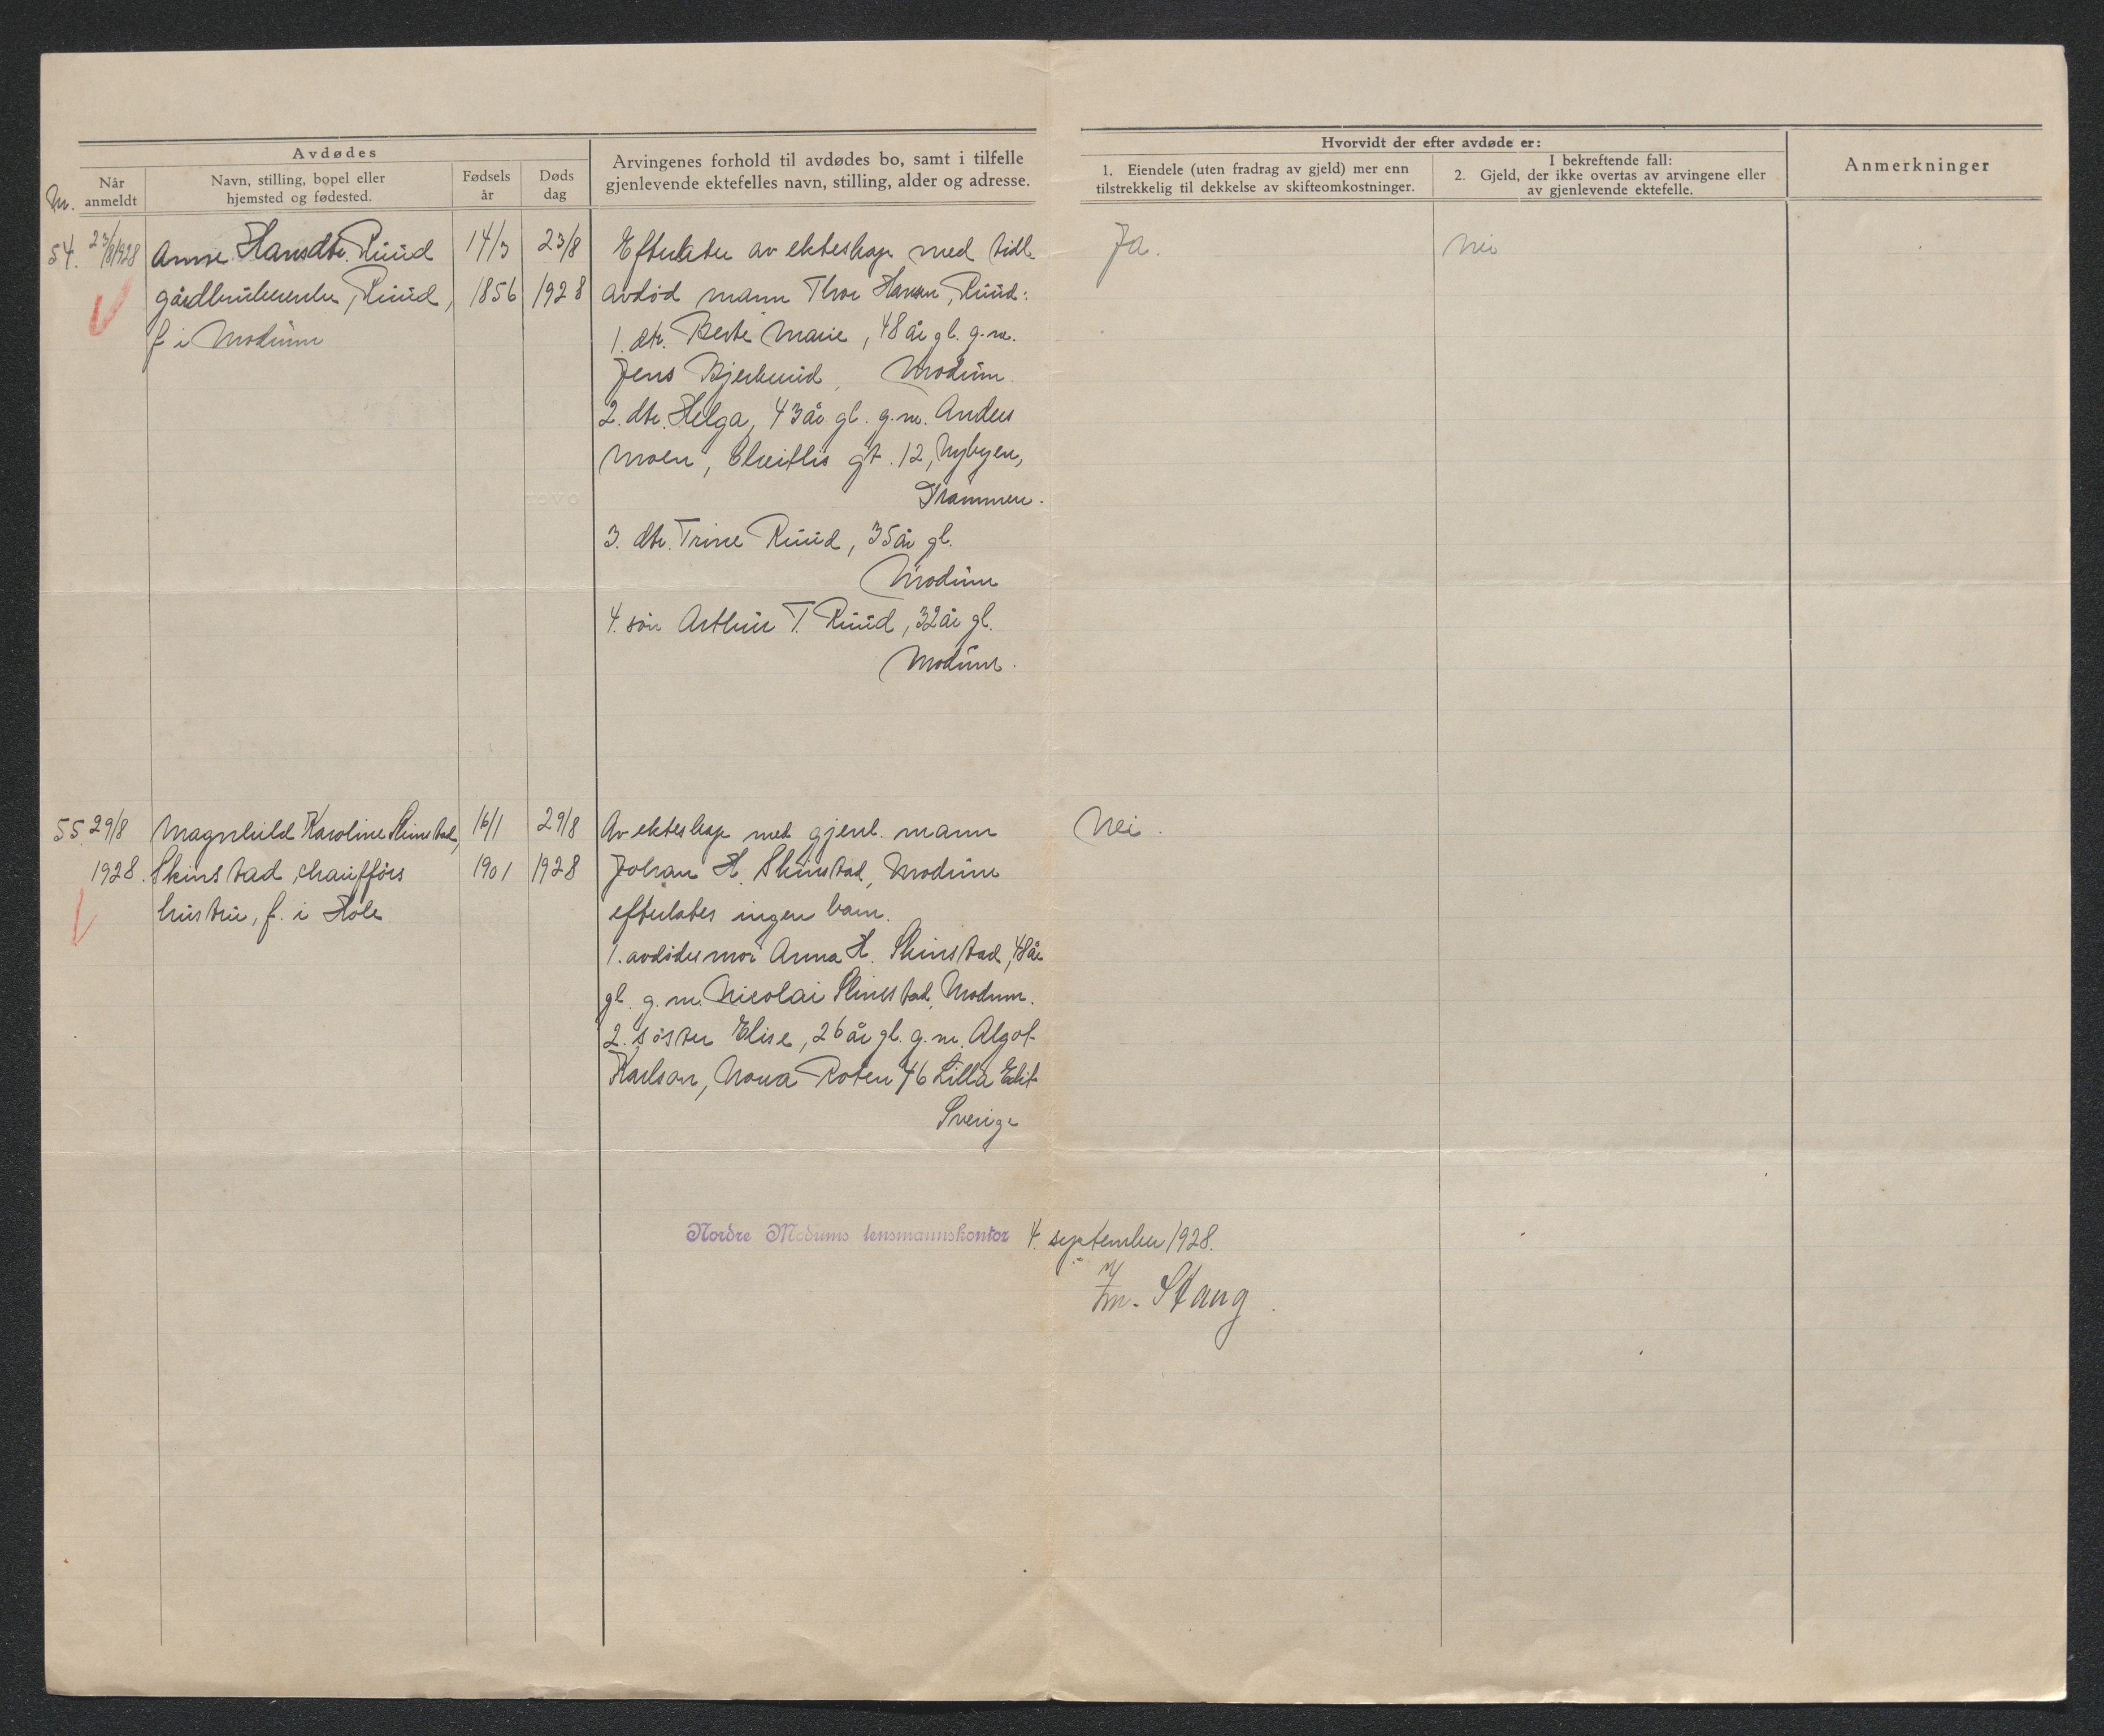 Avdødes
Nr.
Når
anmeldt
Navn, stilling, bopel eller
hjemsted og fødested.
Fødsels
år
Døds
dag
Arvingenes forhold til avdødes bo, samt i tilfelle
gjenlevende ektefelles navn, stilling, alder og adresse.
Hvorvidt der efter avdøde er:
1. Eiendele (uten fradrag av gjeld) mer enn
tilstrekkelig til dekkelse av skifteomkostninger.
I bekreftende fall:
2. Gjeld, der ikke overtas av arvingene eller
av gjenlevende ektefelle.
Anmerkninger
54. 23/8 1928
Anne Hansdtr. Ruud
gårdbrukerenke, Ruud,
f. i Modum
14/3
1856
23/8
1928
Efterlater av ekteskap med tidl.
avdød mann Thor Hansen, Ruud:
1. dtr. Berte Marie, 48 år gl. g.m.
Jens Bjerkerud, Modum.
2. dtr. Helga, 43 år gl. g.m. Anders
Moen, gt. 12, Nybyen,
Drammen.
3. dtr. Trine Ruud, 35 år gl.
Modum
4. søn Arthur T. Ruud, 32 år gl.
Modum.
Ja.
nei
55. 29/8
1928.
Magnhild Karoline Skinstad,
Skinstad, chaufførs
hustru, f. i Hole
16/1
1901
29/8
1928
Av ekteskap med gjenl. mann
Johan H. Skinstad, Modum
efterlates ingen barn.
1. avdødes mor Anna H. Skinstad, 48 år
gl. g.m. Nicolai Skinstad, Modum.
2. søster Elise, 26 år gl. g.m. Algot
Karlson, Norra Roten 46 Lilla Edit
Sverige
Nei.
Nordre Modums lensmannskontor 4. september 1928.
Stang